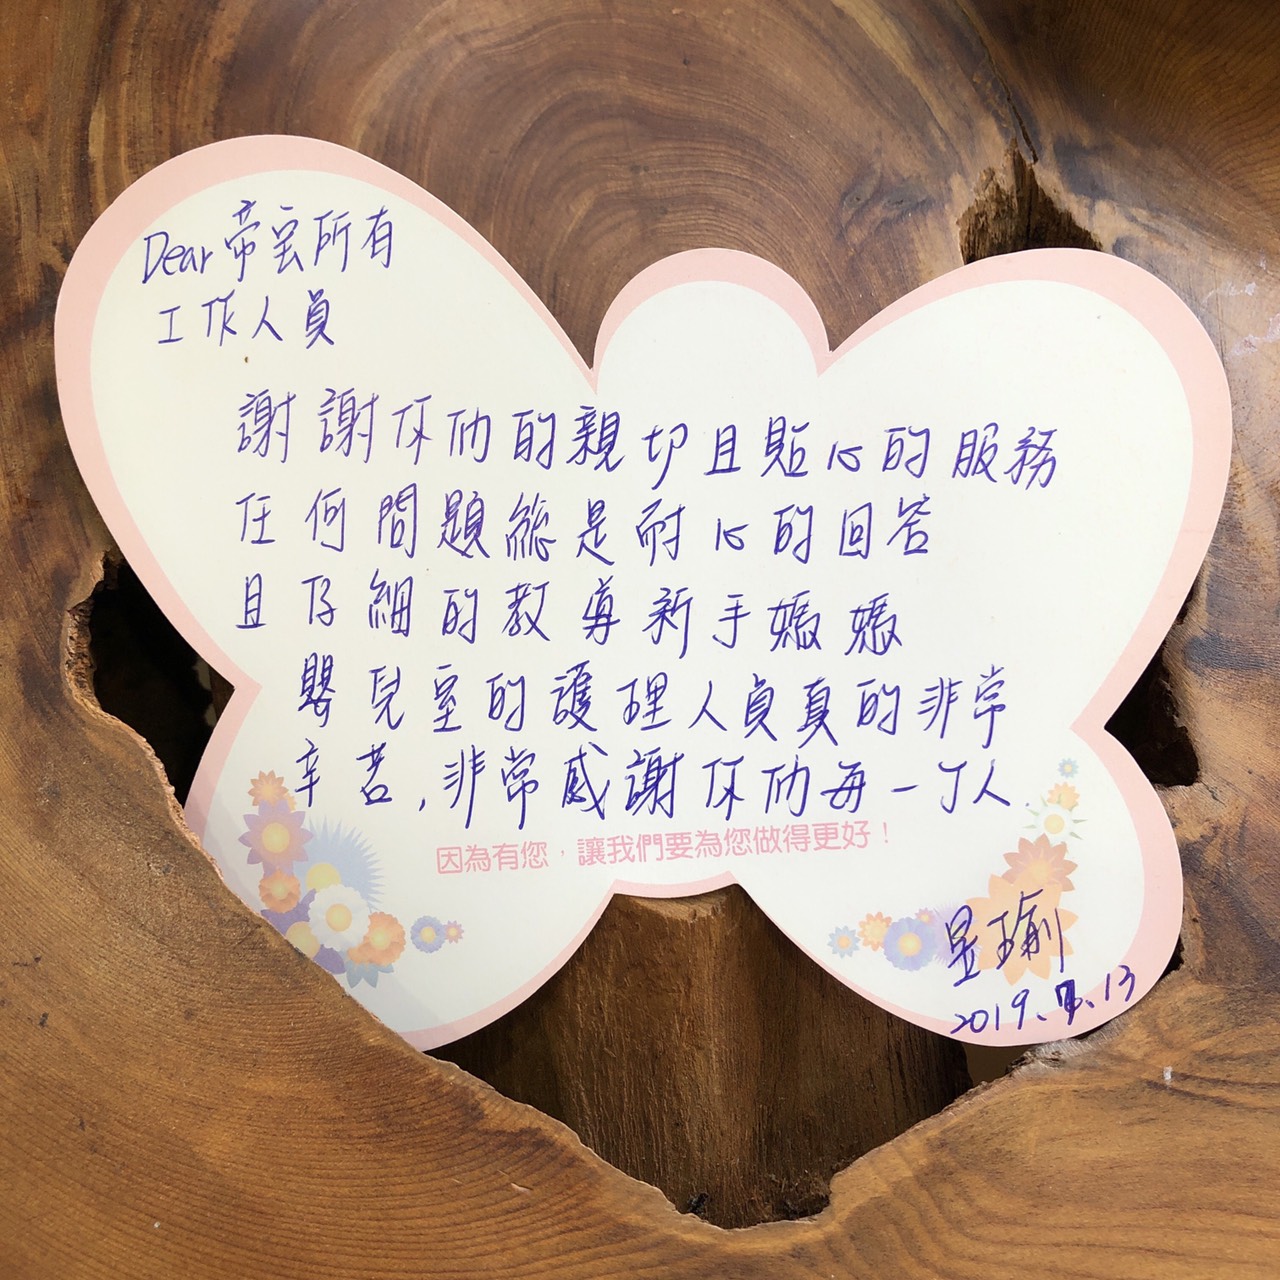 Dear 帝宝所有
工作人員
謝謝你们的親切且貼心的服務
任何問題總是耐心的回答
且仔細的教導新手媽媽
嬰兒室的護理人員真的非常
辛苦,非常感謝你们每一个人.
因為有您,讓我們要為您做得更好!
昱瑜
2019.7.13